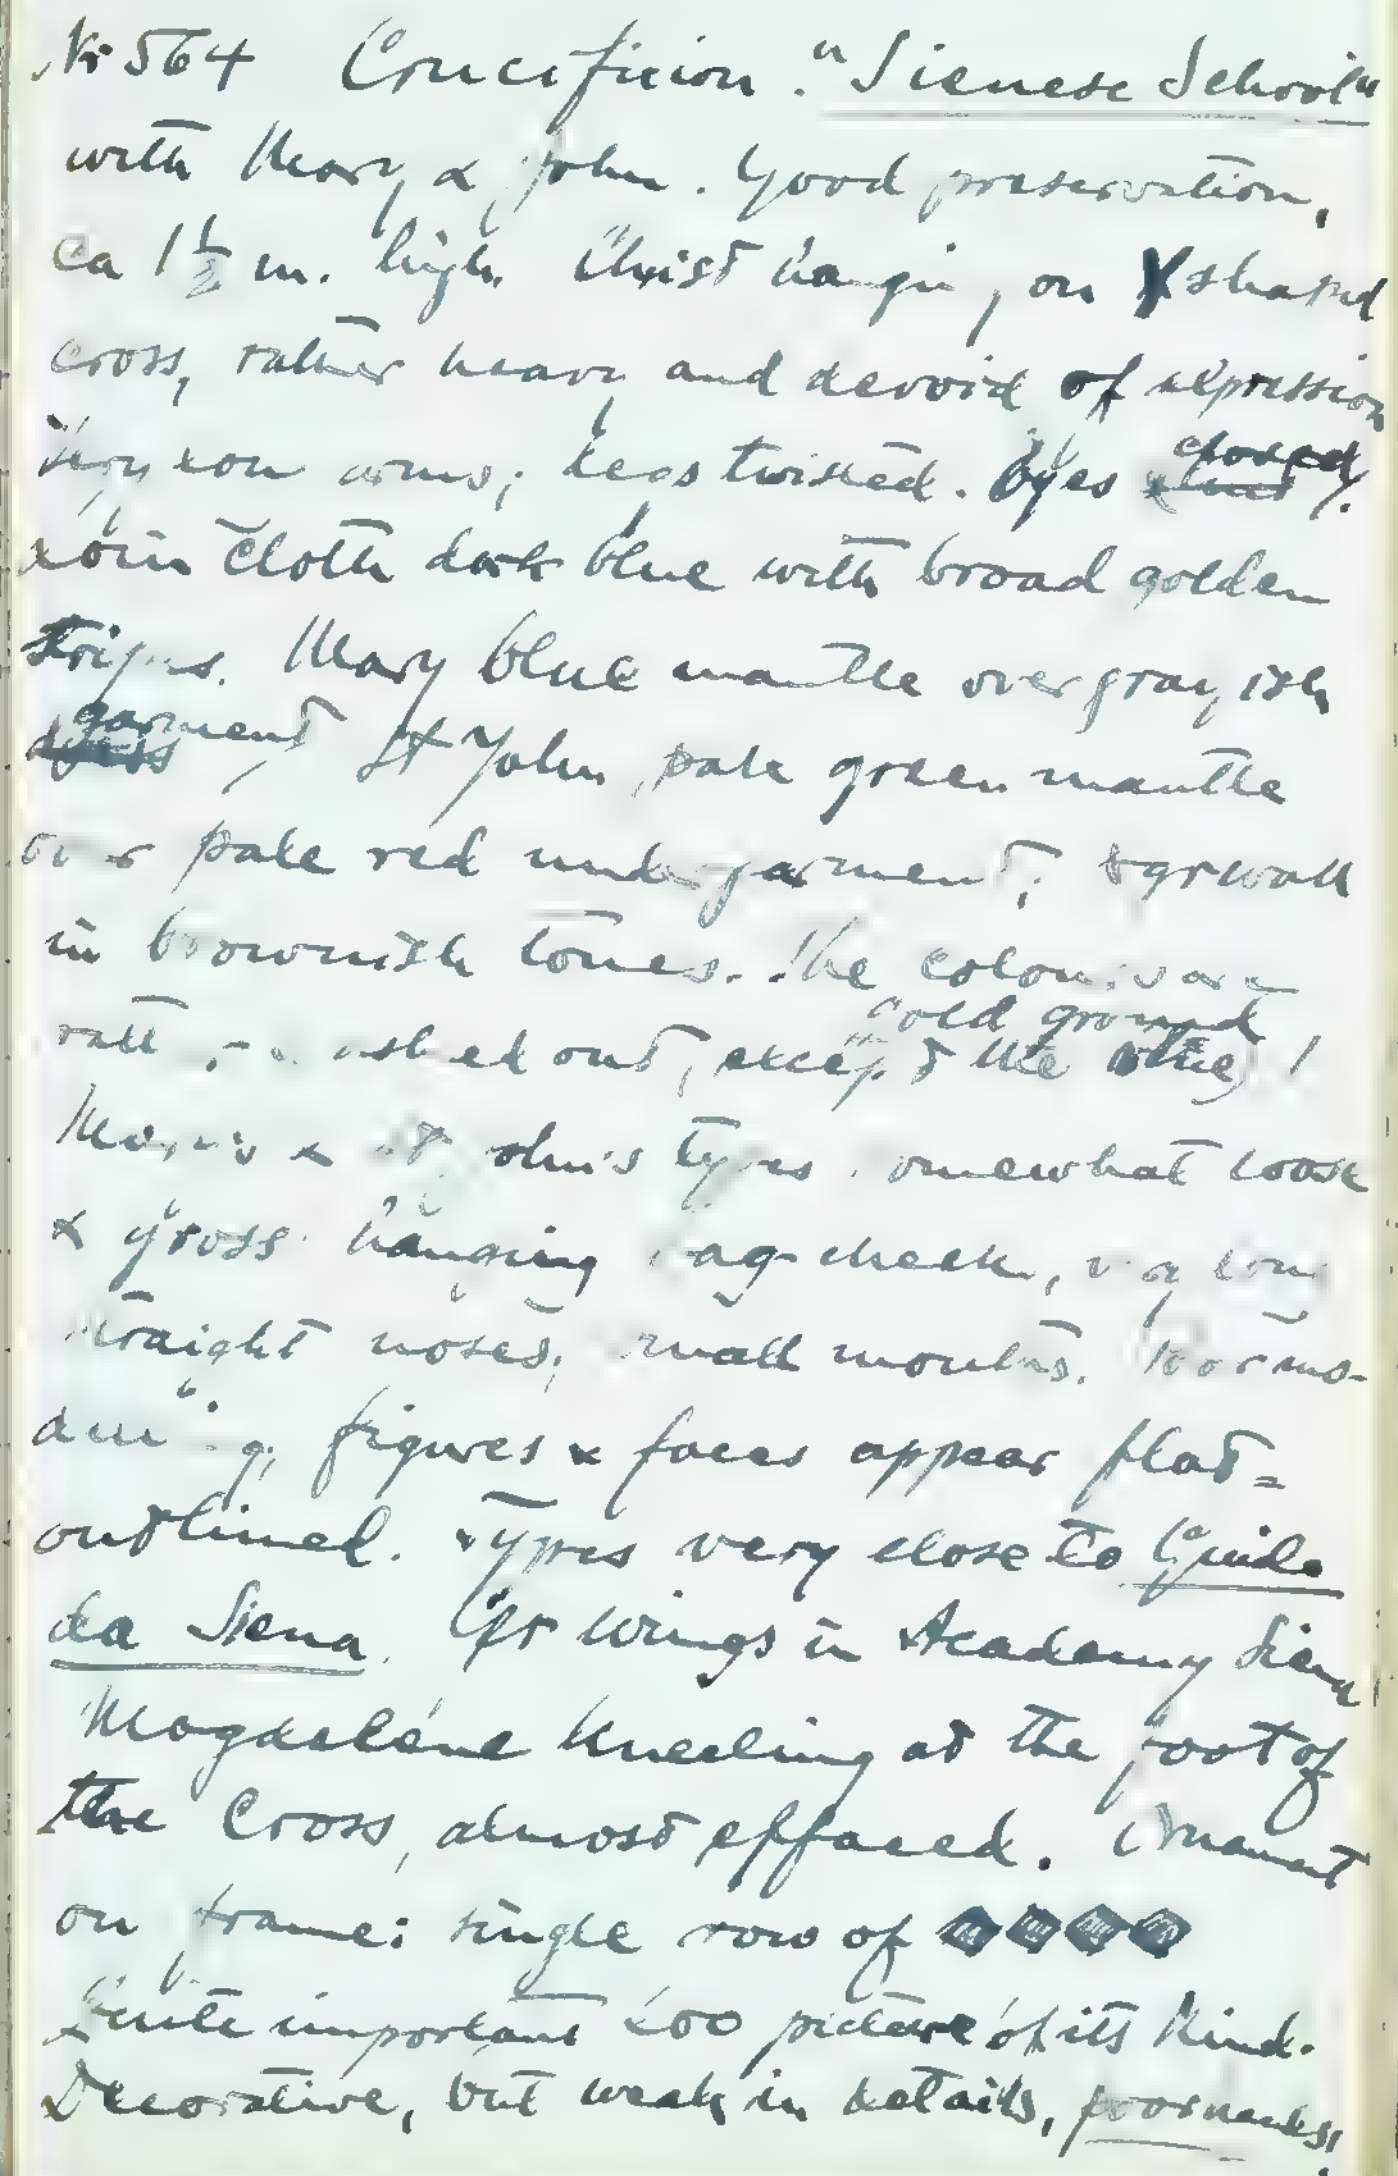 Nr 564 Crucifixion. "Sienese School"
with Mary & John. Good preservation,
ca 1 1/2 m. high. Christ hanging on Y shaped
cross, rather heavy and devoid of expression
Very long arms; legs twisted. Eyes closed.
Loin cloth dark blue with broad golden
stripes. Mary blue mantle over grayish
garment, St John, pale green mantle
over pale red undergarment;
in brownish tones. The colours are
gold ground
rather washed out, except the blue!
Mary's & St John's types somewhat loose
& gross hanging cheek, very long
straight noses, small mouths. Poor mo-
delling, figures & faces appear flat=
outlined. Types very close to Guido
da Siena. Cfr wings in Academy Siena
Magdalene kneeling at the foot of
the Cross, almost effaced. Ornament
on frame: single row of
Quite important too picture of its kind.
Decorative, but weak in details, poor